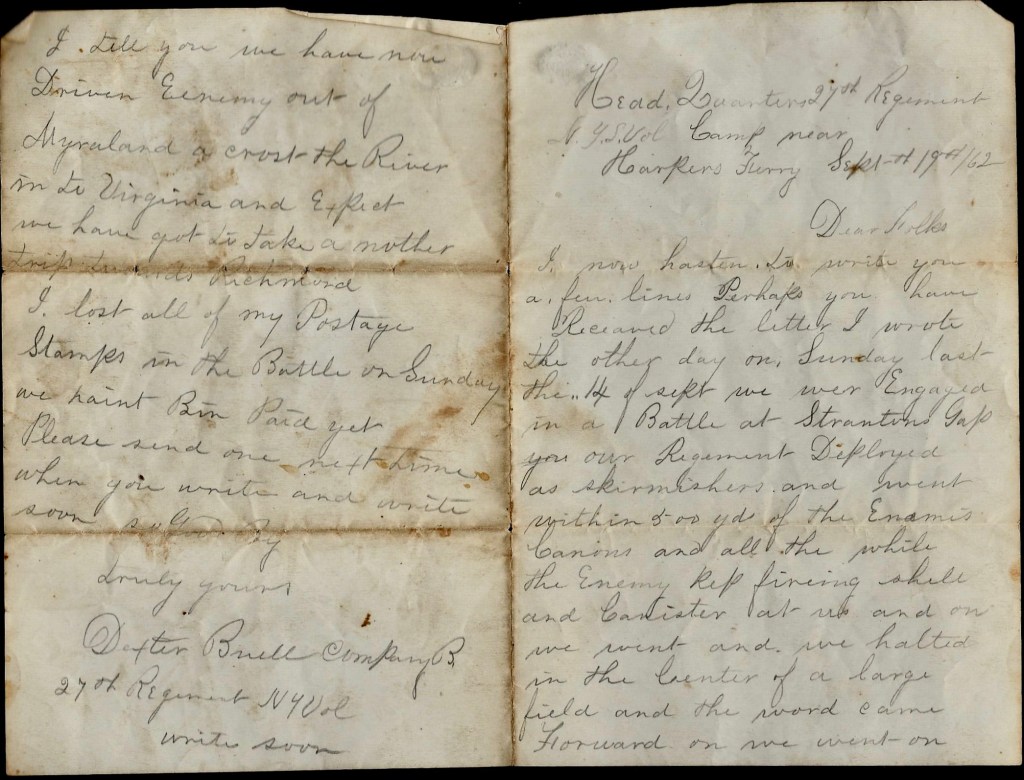 Head, Quarters 27th Regement
N.Y.S. Vol Camp near
Harpers Ferry Sept-th 19th/62
Dear Folks
I. now hasten. to write you
a. few. lines Perhaps you have
Receaved the letter I wrote
the other day on. Sunday last
the.. 14 of sept we wer Engaged
in a Battle at Strantons Gap
you our Regement Deployed
as skirmishers and went
within 500 yds of the Enemis
Canons and all the while
the Enemy kep fireing shell
and Canister at us and on
we went and. we halted
in the Center of a large
field and the word came
Forward on we went on
I. tell you we have now
Driven Eenemy out of
Myraland a crost the River
in to Virginia and Expect
we have got to take a nother
trip towards Richmond
I. lost all of my Postage
Stamps in the Battle on Sunday
we haint Bin Paid yet
Please send one next time
when you write and write
soon so Good By
truly yours
Dexter Buell Company B.
27th Regement NYVol
write soon